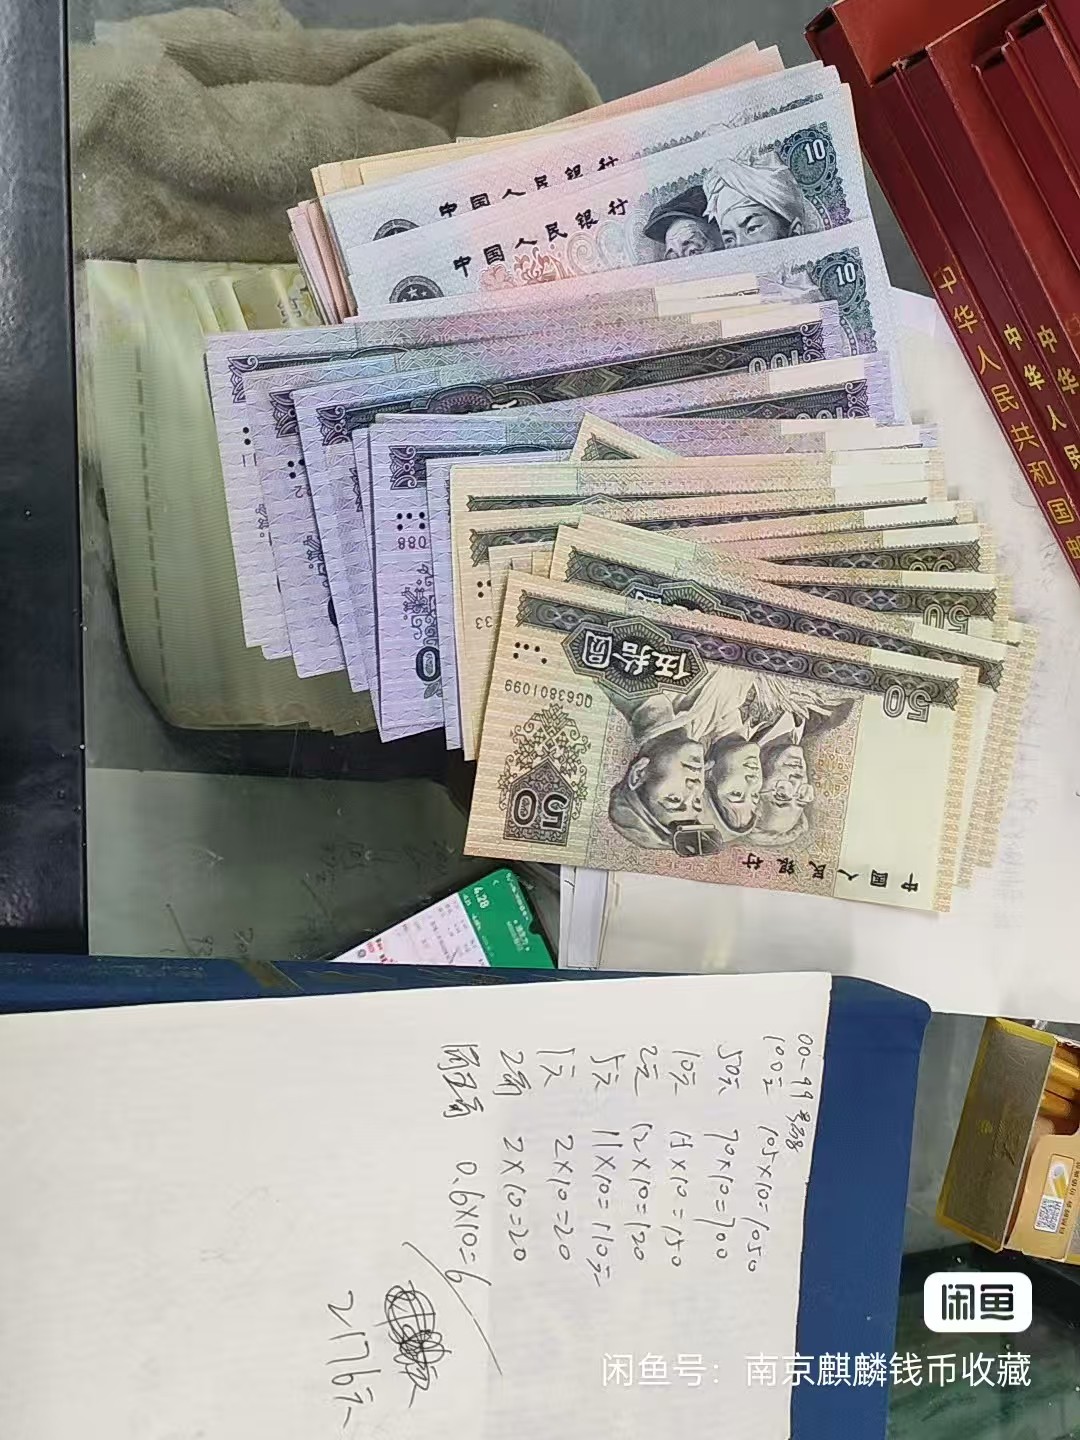 中国人民银行
10
中国人民银行
10
100
100
0880
50
50
伍拾圆
50
QG63801099
50
中国人民银行
中华人民共和国邮
中华人民
中华
6.28
00-99号
100元 105×10=1050
50元 70×10=700
10元 15×10=150
2元 12×10=120
5元 11×10=110元
1元 2×10=20
2角 2×10=20
0.6×10=6
2176元
闲鱼
闲鱼号：南京麒麟钱币收藏